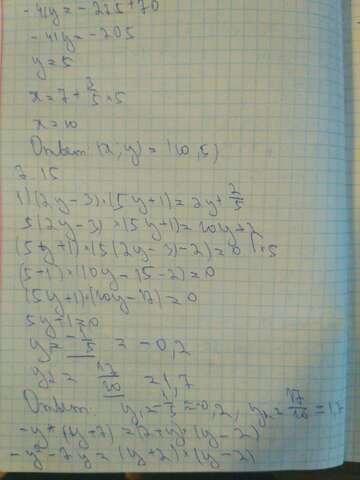 -41y = -275+70
-41y = -205
y = 5
x = 7 + 3/5 · 5
x = 10
Ответ (x; y) = (10, 5)
7 15
1) (2y - 3) · (5y + 1) = 2y + 2/5
5(2y - 3) · (5y + 1) = 10y + 2
(5y + 1) · (5(2y - 3) - 2) = 0 | · 5
(5 + 1) · (10y - 15 - 2) = 0
(5y + 1) · (10y - 17) = 0
5y + 1 = 0
y = -1/5 = -0,2
y₂ = 17/10 = 1,7
Ответ: y₁ = -1/5 = -0,2, y₂ = 17/10 = 1,7
-y · (y + 7) = (2 + y) · (y - 2)
-y² - 7y = (y + 2) · (y - 2)